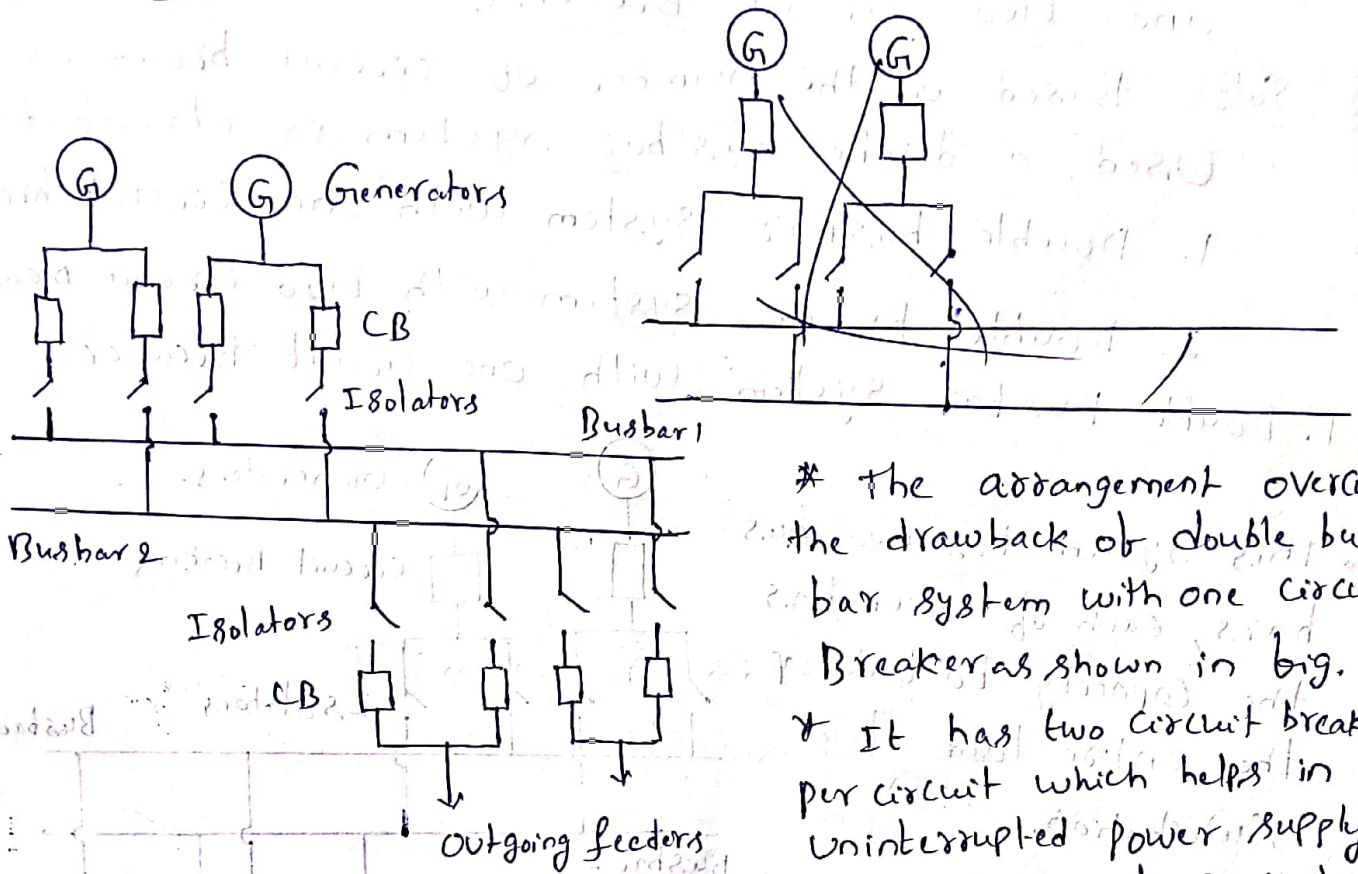 G
G
G
G
Generators
CB
Isolators
Busbar 1
Busbar 2
Isolators
CB
outgoing feeders
* The arrangement overco
the drawback of double bu
bar system with one circu
Breaker as shown in fig.
* It has two circuit break
per circuit which helps in
uninterrupted power supply